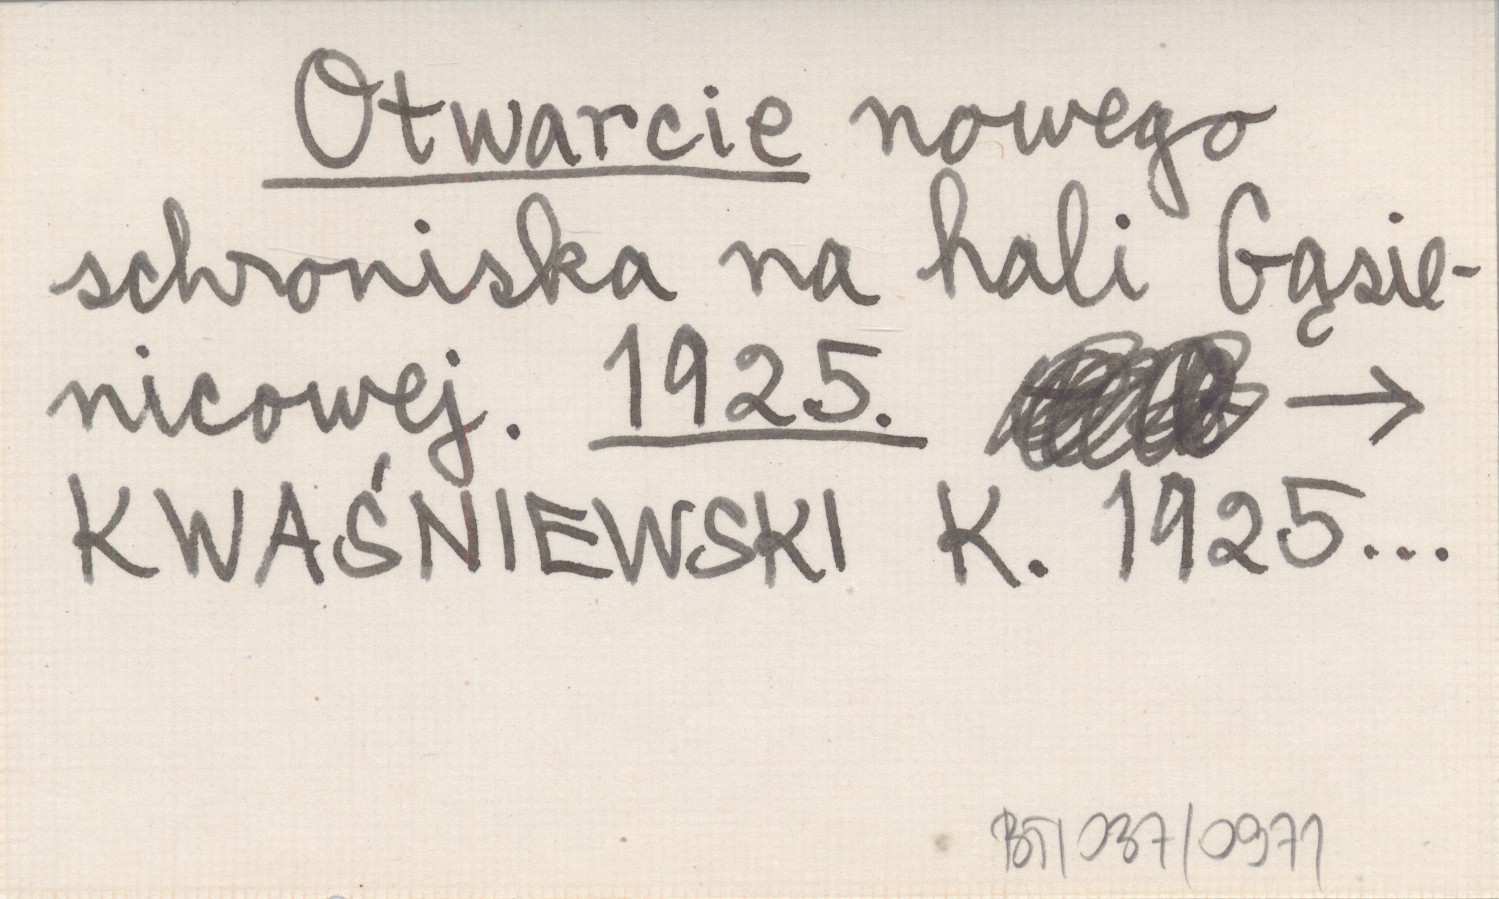 Otwarcie nowego
schroniska na hali Gąsie-
nicowej. 1925. →
KWAŚNIEWSKI K. 1925...
BT/037/0971